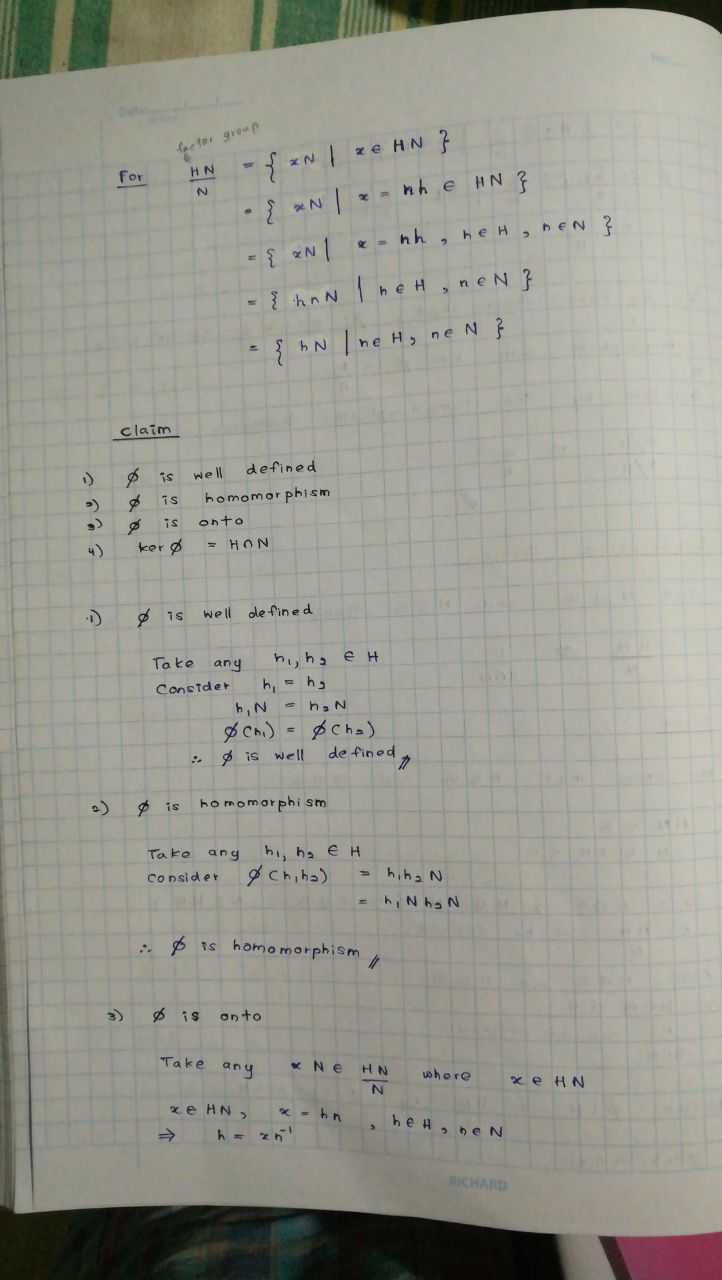 Date:
No:
factor group
For HN/N = { xN | x ∈ HN }
= { xN | x = nh ∈ HN }
= { xN | x = nh , h ∈ H , n ∈ N }
= { hnN | h ∈ H , n ∈ N }
= { hN | h ∈ H , n ∈ N }
claim
1) ϕ is well defined
2) ϕ is homomorphism
3) ϕ is onto
4) ker ϕ = H ∩ N
1) ϕ is well defined
Take any h₁, h₂ ∈ H
Consider h₁ = h₂
h₁N = h₂N
ϕ(h₁) = ϕ(h₂)
∴ ϕ is well defined //
2) ϕ is homomorphism
Take any h₁, h₂ ∈ H
consider ϕ(h₁h₂) = h₁h₂N
= h₁N h₂N
∴ ϕ is homomorphism //
3) ϕ is onto
Take any xN ∈ HN/N where x ∈ HN
x ∈ HN, x = hn , h ∈ H , n ∈ N
⇒ h = xn⁻¹
RICHARD